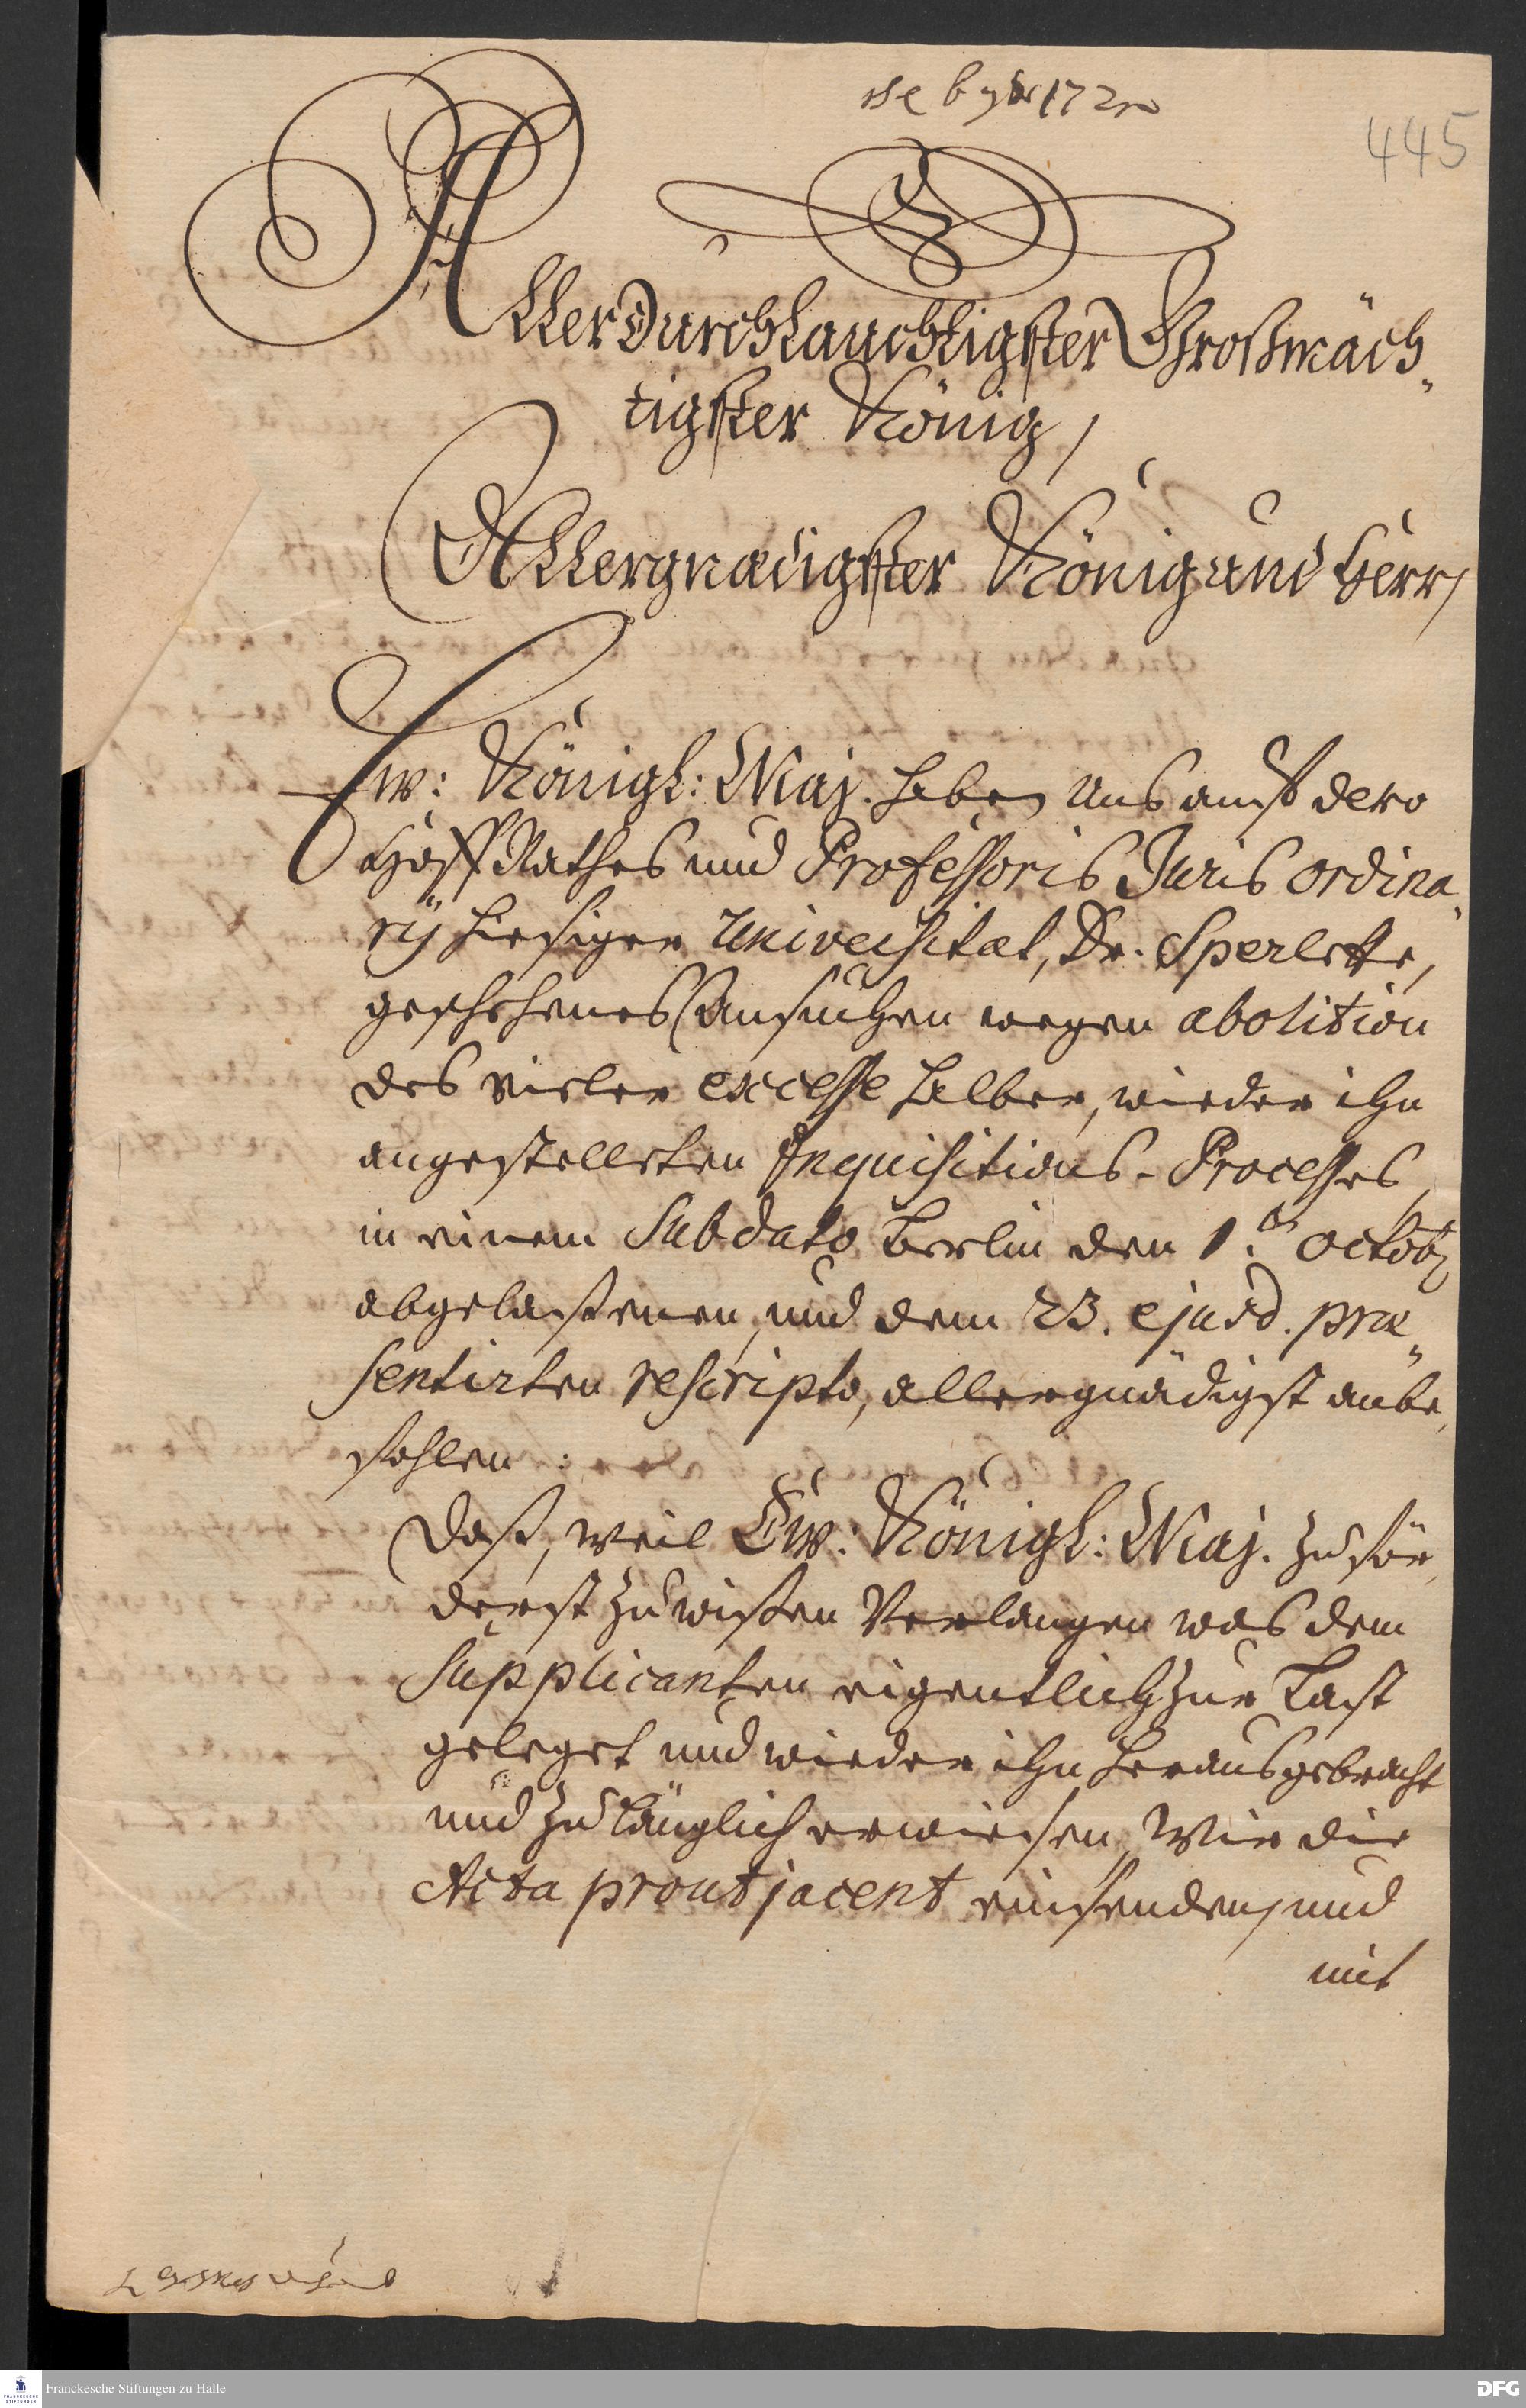 445
AllerDurchlauchtigster Großmäch„
tigster König,
Allergnädigster König und Herr,
Ew: Königl: Maj. haben uns auf dero
Hoff Rathes und Professoris Juris ordina„
rij hiesiger Universitaet, Dr. Sperlette,
geschehenes Ansuchen wegen abolition
des vieler excesse halber, wieder ihn
angestelleten Inquisitions-Processes,
in einem Sub dato Berlin den 1. octobr
abgelaßenen, und dem 23. ejusd. prae„
sentirten rescripto, allergnädigst anbe„
fohlen:
Daß, weil Ew: Königl: Maj. zuför„
derst zu wißen Verlangen was dem
Supplicanten eigentlich zur Last
geleget und wieder ihn herausgebracht
und zulänglich erwiesen, Wir die
Acta prout jacent einsenden, und
mit
Franckesche Stiftungen zu Halle
DFG